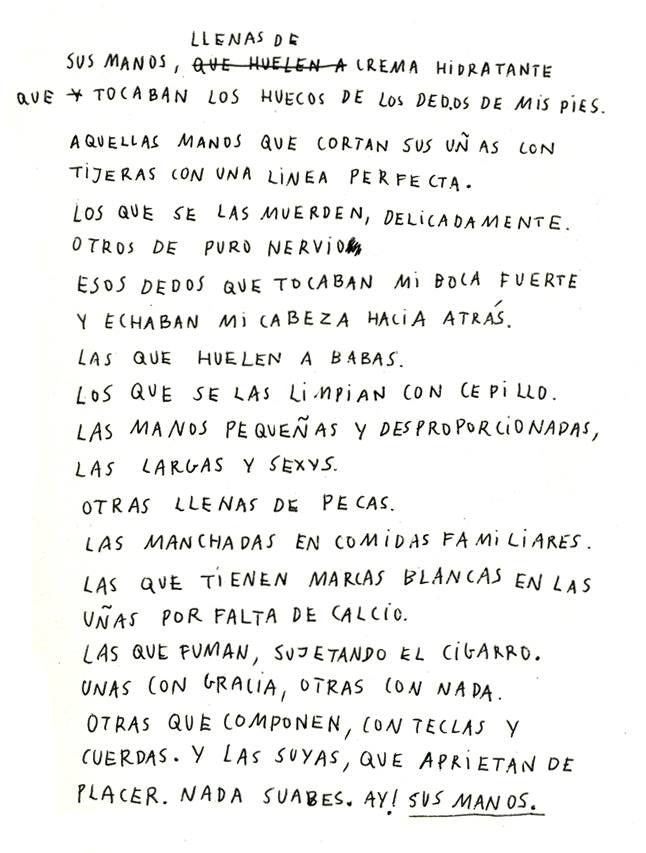 LLENAS DE
SUS MANOS, QUE HUELEN A CREMA HIDRATANTE
QUE Y TOCABAN LOS HUECOS DE LOS DEDOS DE MIS PIES.
AQUELLAS MANOS QUE CORTAN SUS UÑAS CON
TIJERAS CON UNA LINEA PERFECTA.
LOS QUE SE LAS MUERDEN, DELICADAMENTE.
OTROS DE PURO NERVIO
ESOS DEDOS QUE TOCABAN Mi BOCA FUERTE
Y ECHABAN Mi CABEZA HACIA ATRÁS.
LAS QUE HUELEN A BABAS.
LOS QUE SE LAS LIMPIAN CON CEPILLO.
LAS MANOS PEQUEÑAS Y DESPROPORCIONADAS,
LAS LARGAS Y SEXYS.
OTRAS LLENAS DE PECAS.
LAS MANCHADAS EN COMIDAS FAMILIARES.
LAS QUE TIENEN MARCAS BLANCAS EN LAS
UÑAS POR FALTA DE CALCIO.
LAS QUE FUMAN, SUJETANDO EL CIGARRO.
UNAS CON GRACIA, OTRAS CON NADA.
OTRAS QUE COMPONEN, CON TECLAS Y
CUERDAS. Y LAS SUYAS, QUE APRIETAN DE
PLACER. NADA SUABES. AY! SUS MANOS.